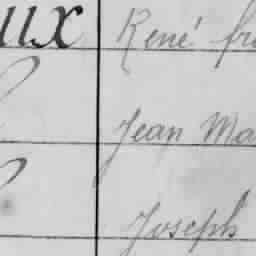 ux René fr
Jean Ma
Joseph